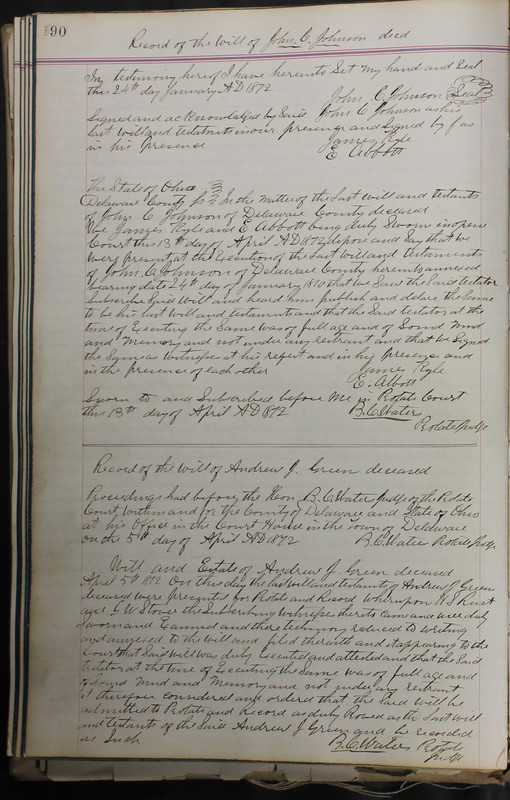 190
Record of the Will of John C. Johnson decd
In testimony hereof I have hereunto Set My hand and Seal
this 24th day January AD 1872
John C Johnson Seal
Signed and acknowledged by Said John C Johnson as his
last will and testament in our presence and Signed by us
in his Presence
James Kyle
E Abbott
The State of Ohio
Delaware County Ss In the matter of the Last will and testants
of John C Johnson of Delaware County deceased
We James Kyle and E Abbott being duly Sworn in open
Court this 13th day of April AD 1872 depose and Say that we
were present at the Execution of the Last will and testaments
of John C Johnson of Delaware County hereunto annexed
bearing date 24th day of January 1870 that we Saw the Said testator
Subscribe Said Will and heard him publish and declare the Same
to be his last will and testament and that the Said testator at the
time of Executing the Same was of full age and of Sound Mind
and Memory and not under any restrant and that we Signed
the Same as Witnesses at his request and in his presence and
in the presence of each other
James Kyle
E. Abbott
Sworn to and Subscribed before Me in Probate Court
this 13th day of April AD 1872
B. C. Water
Probate Judge
Record of the Will of Andrew J. Green deceased
Proceedings had before the Hon. B. C. Water Judge of the Probate
Court within and for the County of Delaware and State of Ohio
at his Office in the Court House in the Town of Delaware
on the 5th day of April AD 1872
B. C. Water Probate Judge
Will and Estate of Andrew J Green deceased
April 5th 1872 On this day the last will and testament of Andrew J Green
deceased were presented for Probate and Record whereupon
and J. W Stone the Subscribing witnesses thereto came and were duly
Sworn and Examined and there testimony reduced to writing
and annexed to the will and filed therewith and it appearing to the
Court that Said will was duly Executed and attested and that the Said
testator at the time of Executing the Same was of full age and
of Sound Mind and Memory and not under any restrant
it therefore considered and ordered that the Said will be
admitted to Probate and Record as duly Proved as the Last will
and testants of the Said Andrew J Green and be recorded
as Such
B. C. Waters Probate
Judge